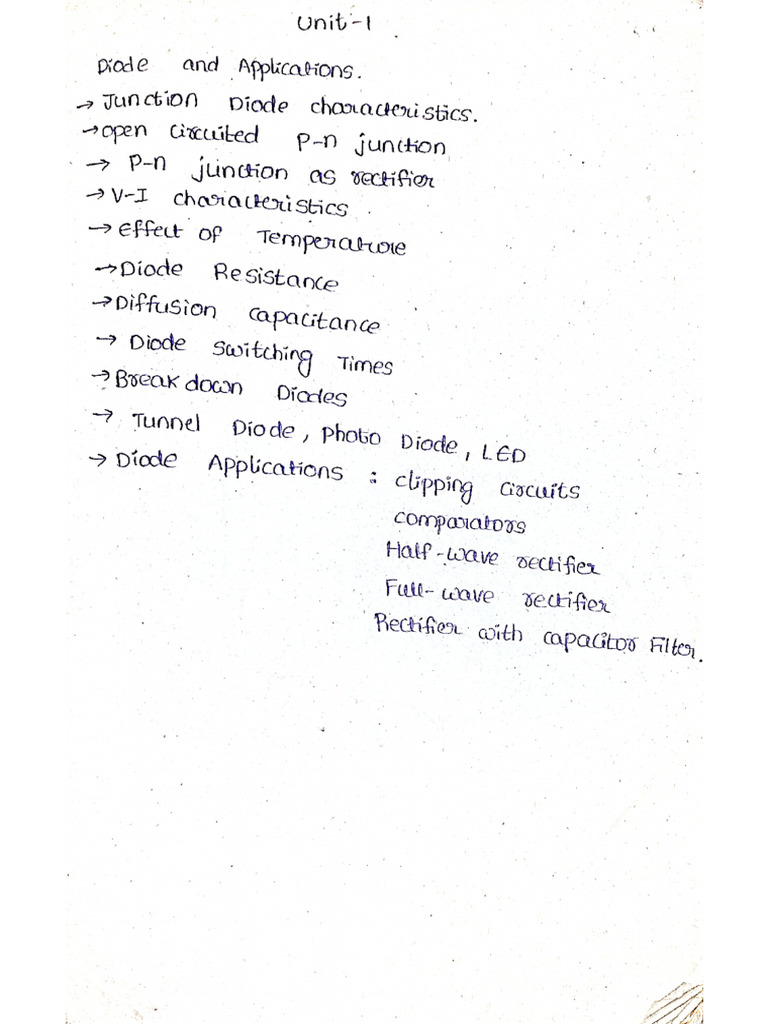 Unit-1.
Diode and Applications.
→ Junction Diode characteristics.
→ open circuited P-n junction
→ P-n junction as rectifier
→ V-I characteristics.
→ Effect of Temperature
→ Diode Resistance
→ Diffusion capacitance
→ Diode switching Times
→ Break down Diodes
→ Tunnel Diode, photo Diode, LED
→ Diode Applications : clipping circuits
comparators
Half-wave rectifier
Full-wave rectifier
Rectifier with capacitor Filter.